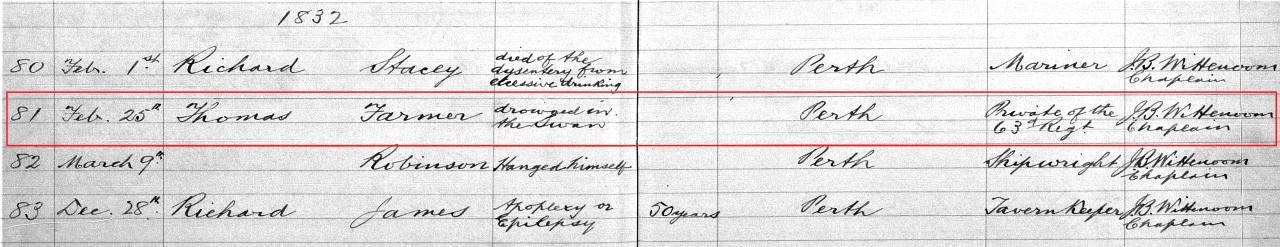 1832
80 Feb. 1st Richard Stacey died of the dysentery from excessive drinking Perth Mariner J.B. Wittenoom Chaplain
81 Feb. 25th Thomas Farmer drowned in the Swan Perth Private of the 63rd Regt J.B. Wittenoom Chaplain
82 March 9th Robinson Hanged himself Perth Shipwright J.B. Wittenoom Chaplain
83 Dec. 28th Richard James Apoplexy or Epilepsy 50 years Perth Tavern Keeper J.B. Wittenoom Chaplain